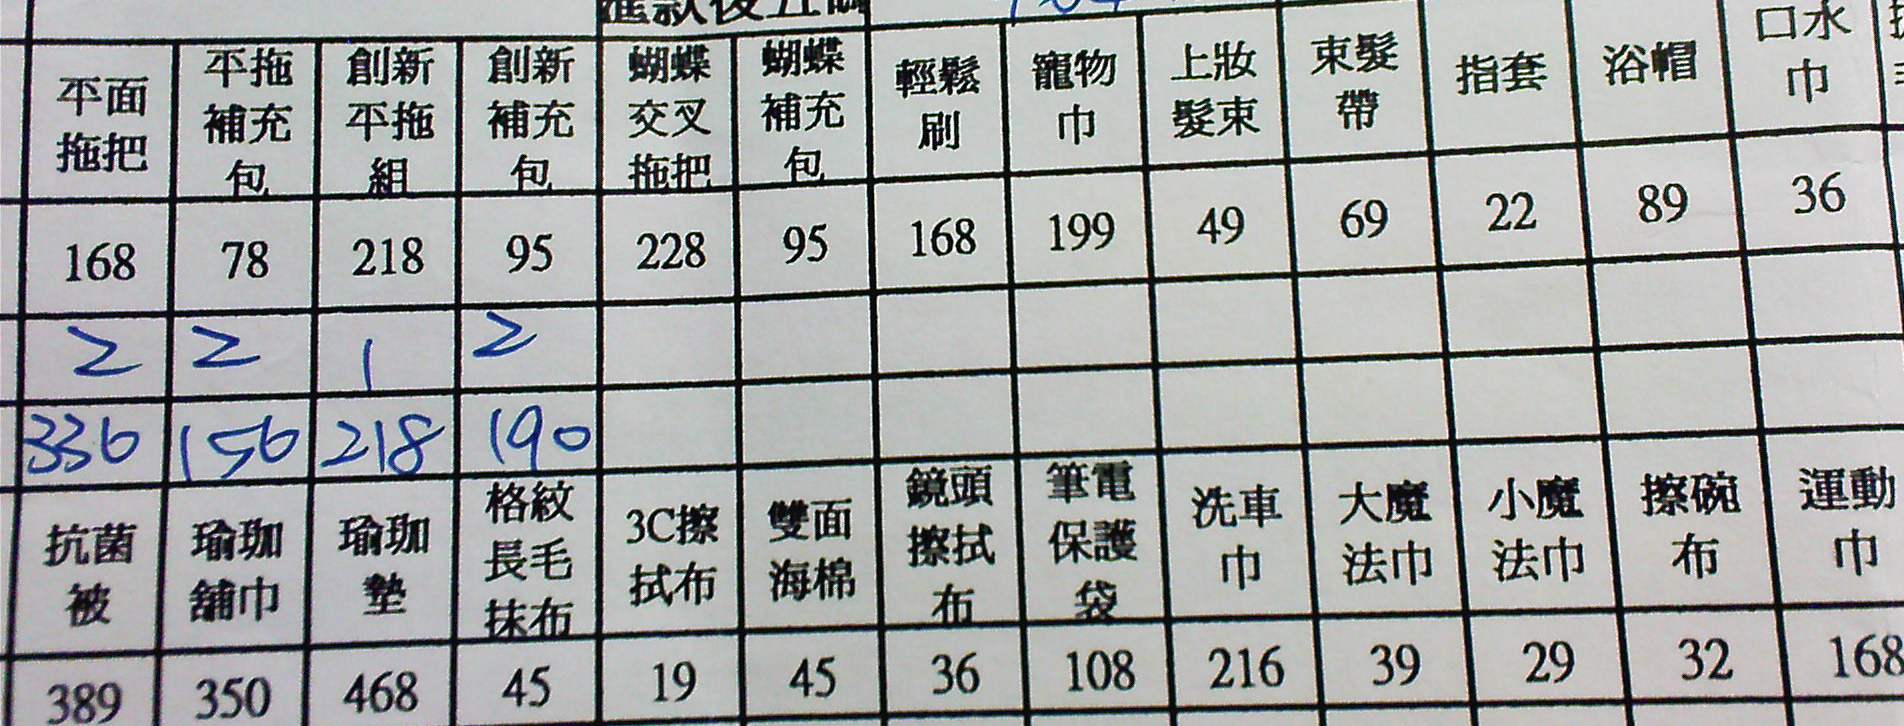 匯款後五碼
平面拖把 平拖補充包 創新平拖組 創新補充包 蝴蝶交叉拖把 蝴蝶補充包 輕鬆刷 寵物巾 上妝髮束 束髮帶 指套 浴帽 口水巾
168 78 218 95 228 95 168 199 49 69 22 89 36
2 2 1 2
336 156 218 190
抗菌被 瑜珈舖巾 瑜珈墊 格紋長毛抹布 3C擦拭布 雙面海棉 鏡頭擦拭布 筆電保護袋 洗車巾 大魔法巾 小魔法巾 擦碗布 運動巾
389 350 468 45 19 45 36 108 216 39 29 32 168